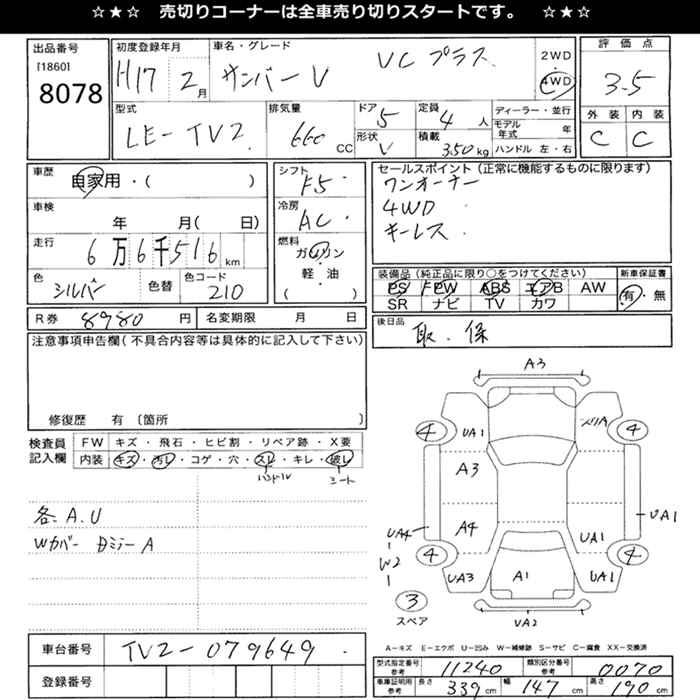 ☆★☆ 売切りコーナーは全車売り切りスタートです。 ☆★☆
出品番号 [1860] 8078
初度登録年月 H17 2月
車名・グレード サンバーV VCプラス
2WD 4WD
評価点 3.5
外装 C 内装 C
型式 LE-TV2
排気量 660 CC
ドア 5
形状 V
定員 4人
積載 350 kg
ディーラー・並行
モデル年式 年
ハンドル 左・右
車歴 自家用・( )
車検 年 月( 日)
走行 6万6千516 km
色 シルバー 色替 色コード 210
シフト F5
冷房 AC
燃料 ガソリン・軽油 ( )
セールスポイント(正常に機能するものに限ります)
ワンオーナー
4WD
キーレス
装備品(純正品に限り○をつけてください) 新車保証書
PS PW ABS エアB AW 有・無
SR ナビ TV カワ
R券 8980円 名変期限 月 日
後日品 取.保
注意事項申告欄(不具合内容等は具体的に記入して下さい)
修復歴 有 〔箇所 〕
検査員記入欄 FW キズ・飛石・ヒビ割・リペア跡・X要
内装 キズ・汚レ・コゲ・穴・スレ・キレ・破レ
ハンドル シート
各A.U
Wカバー DミラーA
A3
4 UA1 4
A3
UA1
UA4 A4 UA1
W2 4 4
UA3 A1 UA1
3 スペア
UA2
A-キズ E-エクボ U-凹み W-補修跡 S-サビ C-腐食 XX-交換済
車台番号 TV2-079649
登録番号
型式指定番号 参考 11240 類別区分番号 参考 0070
車庫証明用 参考 長さ 339cm 幅 147cm 高さ 190cm